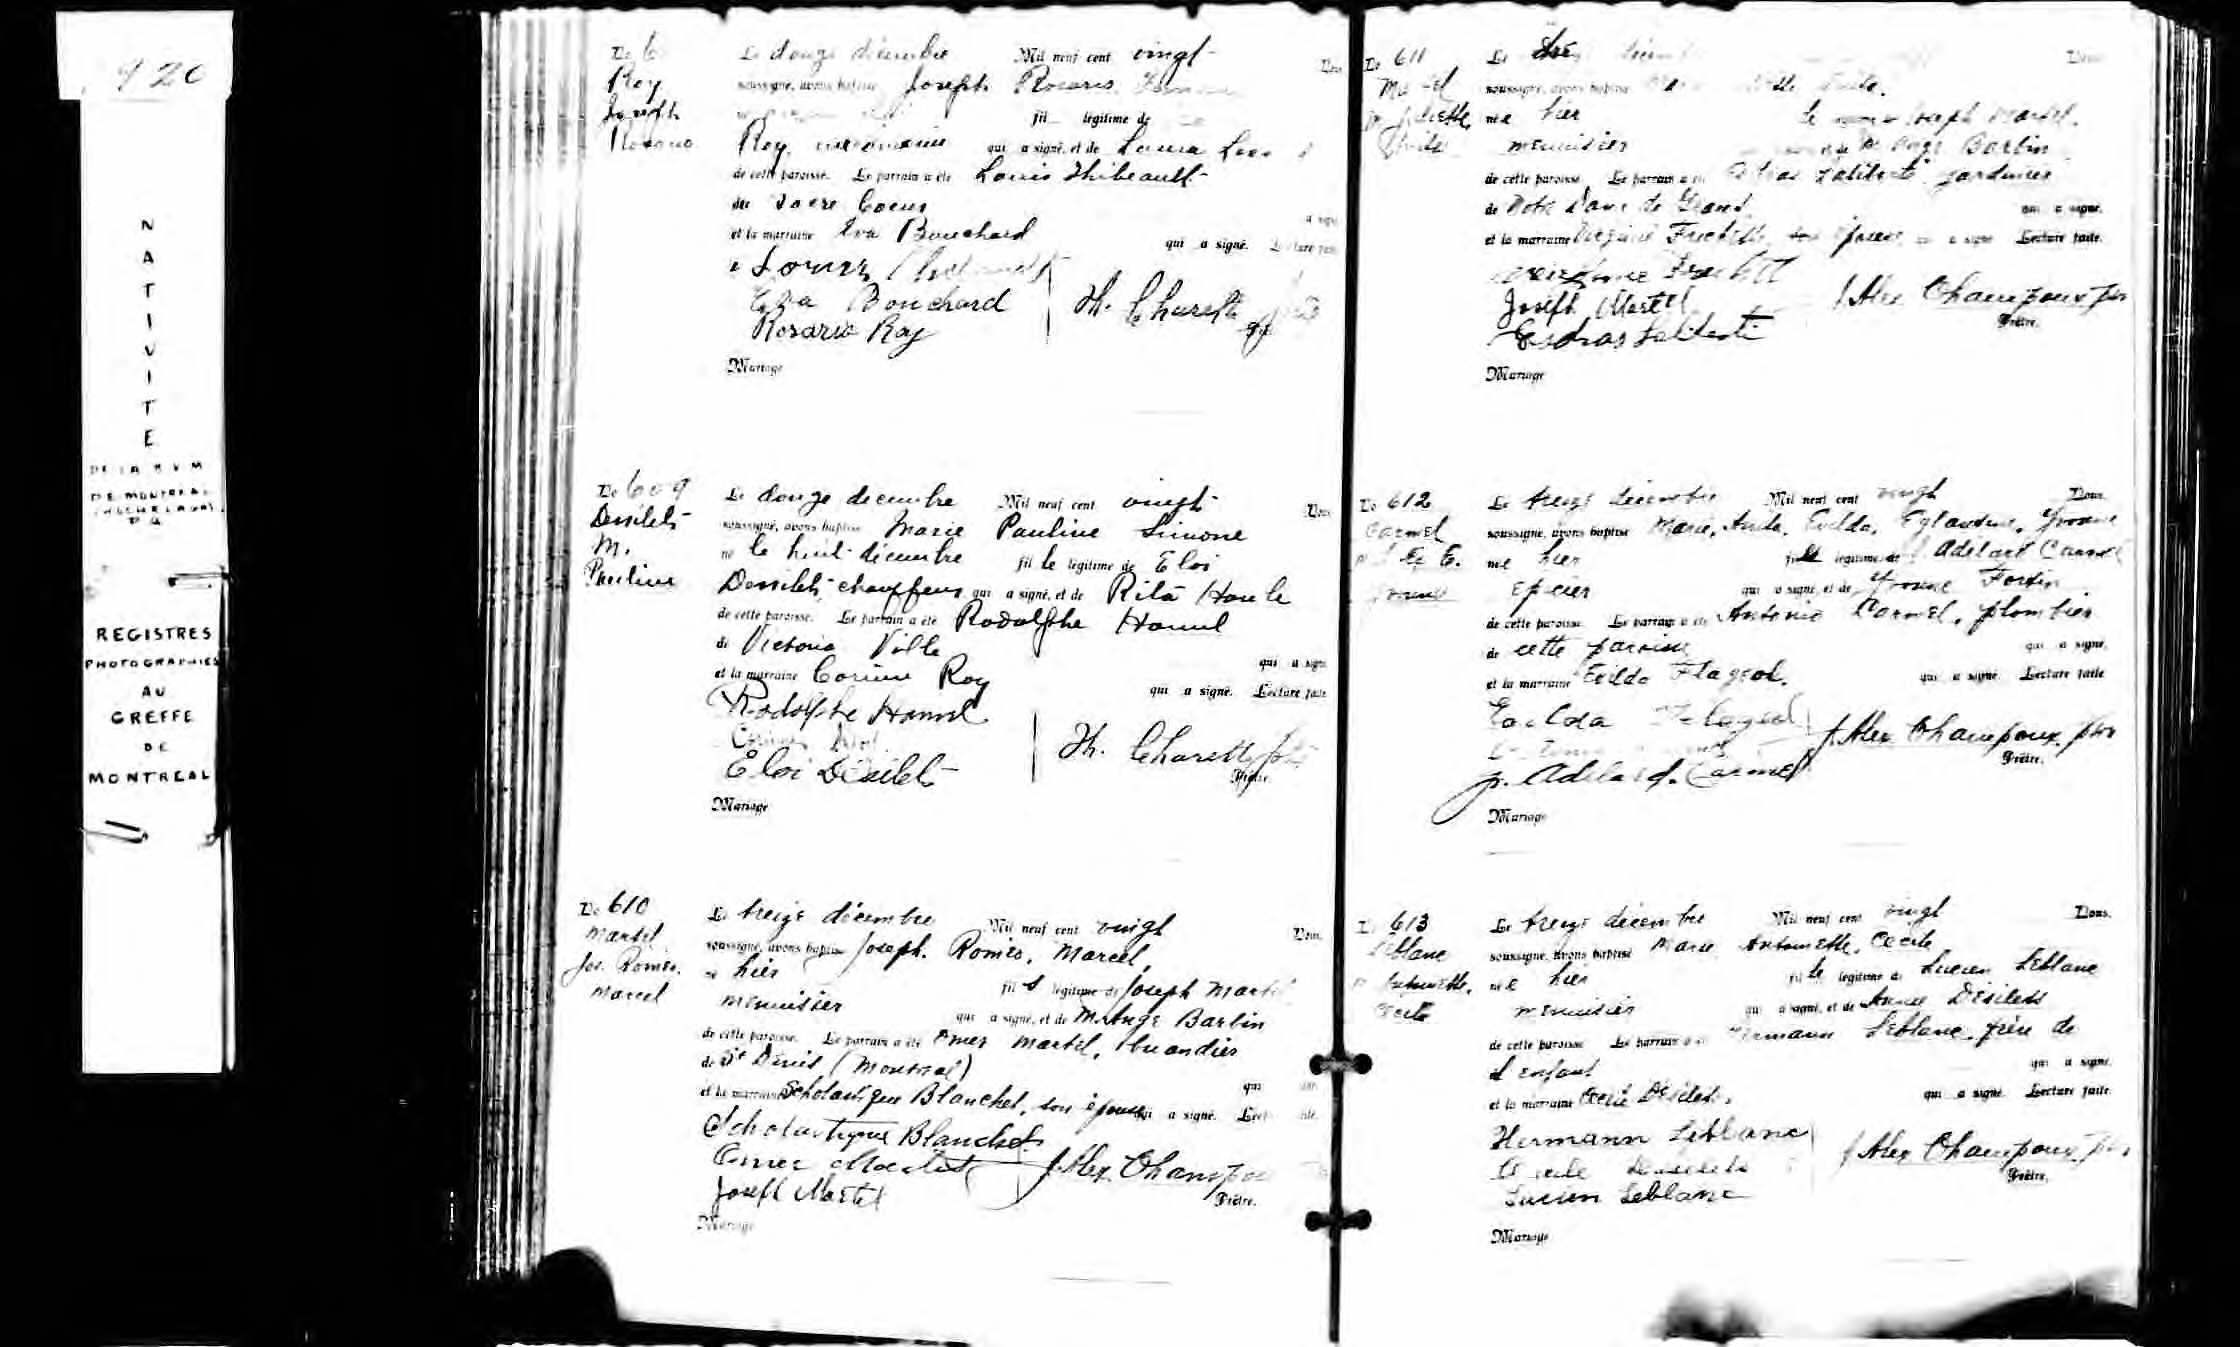 1920
NATIVITE
DE LA B V M
DE MONTREAL
(HOCHELAGA)
P.Q.
REGISTRES
PHOTOGRAPHIES
AU
GREFFE
DE
MONTREAL
Roy
Joseph
Le douze décembre Mil neuf cent vingt
soussigné, avons baptisé Joseph Rosario
fil légitime de
Roy, qui a signé, et de Laura
de cette paroisse. Le parrain a été Louis Thibeault
du Sacré Coeur a signé
et la marraine Eva Bouchard qui a signé. Lecture faite
Eva Bouchard
Rosario Roy
Th. Charette
Mariage
No 609
Desilets
M.
Pauline
Le douze decembre Mil neuf cent vingt Nous
soussigné, avons baptisé Marie Pauline Simone
né le huit décembre fil le légitime de Eloi
Desilets, chauffeur qui a signé, et de Rita Houle
de cette paroisse. Le parrain a été Rodolphe Hamel
de Victoria Ville qui a signé
et la marraine Corinne Roy qui a signé. Lecture faite
Rodolphe Hamel
Eloi Désilets
Th. Charette ptre
Prêtre.
Mariage
No 610
Martel
Jos. Roméo.
Marcel
Le treize décembre Mil neuf cent vingt Nous
soussigné, avons baptisé Joseph. Roméo, Marcel,
né hier fil s légitime de Joseph Martel
menuisier qui a signé, et de M. Ange Barbin
de cette paroisse. Le parrain a été Omer Martel, buandier
de St Denis (Montreal) qui
et la marraine Scholastique Blanchet, son épouse qui a signé.
Scholastique Blanchet
Omer Martel
Joseph Martel
J. Alex. Champoux
Prêtre.
Mariage
No 611
Le
soussigné, avons baptisé
née hier Joseph Martel.
menuisier M. Ange Barbin
de cette paroisse. Le parrain a été Esdras Laliberté, jardinier
de Notre Dame de Grand. qui a signé.
et la marraine Frechette, son épouse, qui a signé Lecture faite.
Joseph Martel
Esdras Laliberté
J. Alex Champoux ptre
Prêtre.
Mariage
No 612
Carmel
Le treize décembre Mil neuf cent vingt Nous.
soussigné, avons baptisé Marie, Anita, Exilda, Eglantine, Yvonne
née hier fille légitime de J Adélard Carmel
Epicier qui a signé, et de Yvonne Fortin
de cette paroisse. Le parrain a été Antonio Carmel, plombier
de cette paroisse qui a signé.
et la marraine Exilda Flageol. qui a signé. Lecture faite
J. Adelard. Carmel
J. Alex Champoux ptre
Prêtre.
Mariage
No 613
Leblanc
Antoinette,
Cecile
Le treize décembre Mil neuf cent vingt Nous.
soussigné, avons baptisé Marie Antoinette, Cecile
née hier fil le légitime de Lucien Leblanc
menuisier qui a signé, et de Annie Désilets
de cette paroisse. Le parrain a été Hermann Leblanc, frère de
l'enfant qui a signé.
et la marraine Cecile Désilets. qui a signé. Lecture faite.
Hermann Leblanc
Cecile Desilets
Lucien Leblanc
J. Alex Champoux ptre
Prêtre.
Mariage